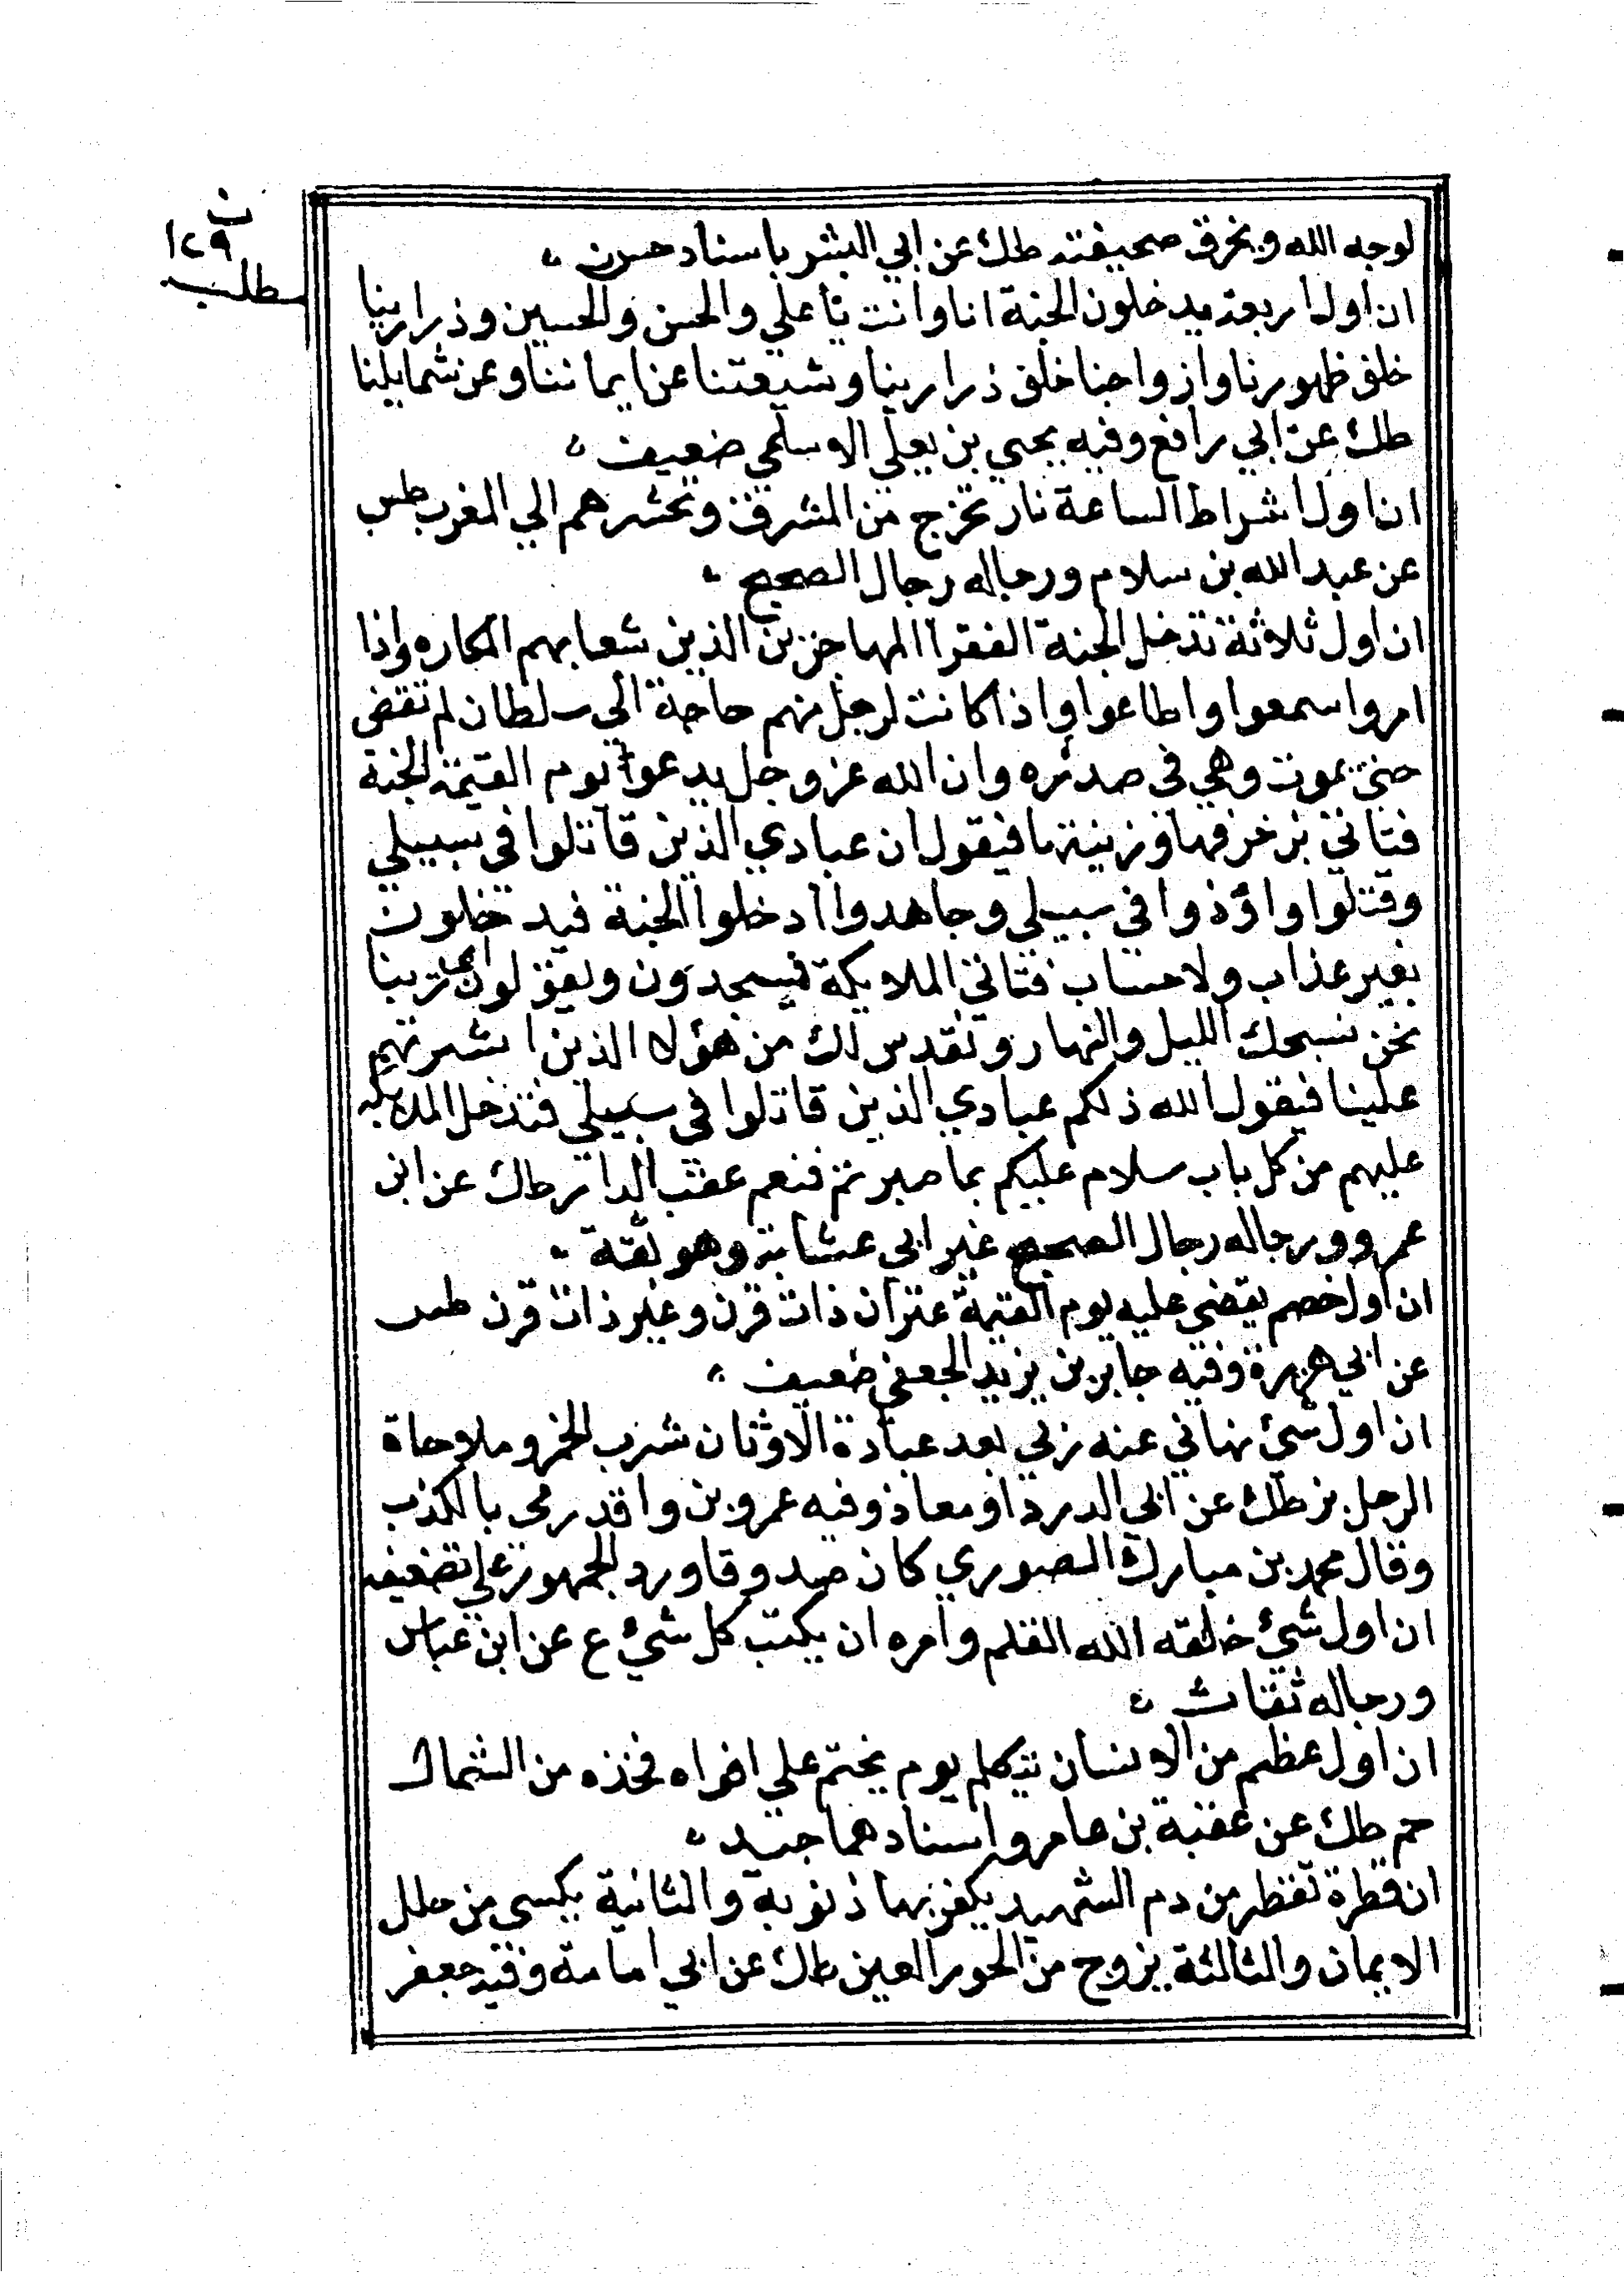 ن
١٢٩
مطلب
لوجه الله ويخرق صحيفته طك عن ابي البشر باسناد حسن
ان اول اربعة يدخلون الجنة انا وانت يا علي والحسن والحسين وذرارينا
خلف ظهورنا وازواجنا خلف ذرارينا وشيعتنا عن ايماننا وعن شمايلنا
طك عن ابي رافع وفيه يحيي بن يعلي الاسلمي ضعيف
ان اول اشراط الساعة نار تخرج من المشرق وتحشرهم الي المغرب طس
عن عبد الله بن سلام ورجاله رجال الصحيح
ان اول ثلاثة تدخل الجنة الفقرا المهاجرين الذين بهم المكاره واذا
امروا سمعوا واطاعوا واذا كانت لرجل منهم حاجة الي سلطان لم تقضي
حتي يموت وهي في صدره وان الله عز وجل يدعوا يوم القيمة الجنة
فتاتي بزخرفها وزينتها فيقول ان عبادي الذين قاتلوا في سبيلي
وقتلوا واوذوا في سبيلي وجاهدوا ادخلوا الجنة فيدخلون
بغير عذاب ولا حساب فتاتي الملايكة فيسجدون ويقولون ربنا
نحن نسبحك الليل والنهار ونقدس لك من هؤلا الذين اثرتهم
علينا فيقول الله ذلكم عبادي الذين قاتلوا في سبيلي فتدخل الملايكة
عليهم من كل باب سلام عليكم بما صبرتم فنعم عقب الدار طك عن ابن
عمرو ورجاله رجال الصحيح غير ابي عشانة وهو ثقة
ان اول خصم يقضي عليه يوم القيمة عنزان ذات قرن وغير ذات قرن طس
عن ابي هريرة وفيه جابر بن يزيد الجعفي ضعيف
ان اول شئ نهاني عنه ربي بعد عبادة الاوثان شرب الخمر وملاحاة
الرجل بز طك عن ابي الدردا ومعاذ وفيه عمرو بن واقد رمي بالكذب
وقال محمد بن مبارك الصوري كان صدوقا ورد الجمهور علي تضعيفه
ان اول شئ خلقه الله القلم وامره ان يكتب كل شئ ع عن ابن عباس
ورجاله ثقات
ان اول عظم من الانسان تتكلم يوم يختم علي افواه فخذه من الشمال
حم طك عن عقبة بن عامر واسنادهما جيد
ان قطرة تقطر من دم الشهيد يكفر بها ذنوبه والثانية يكسي من حلل
الايمان والثالثة يزوج من الحور العين طك عن ابي امامة وفيه جعفر